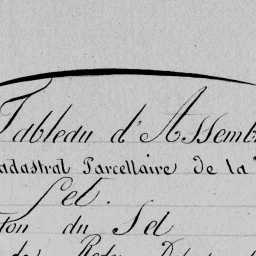 Tableau d'Assemb
adastral Parcellaire de la
Set.
ton du Sel